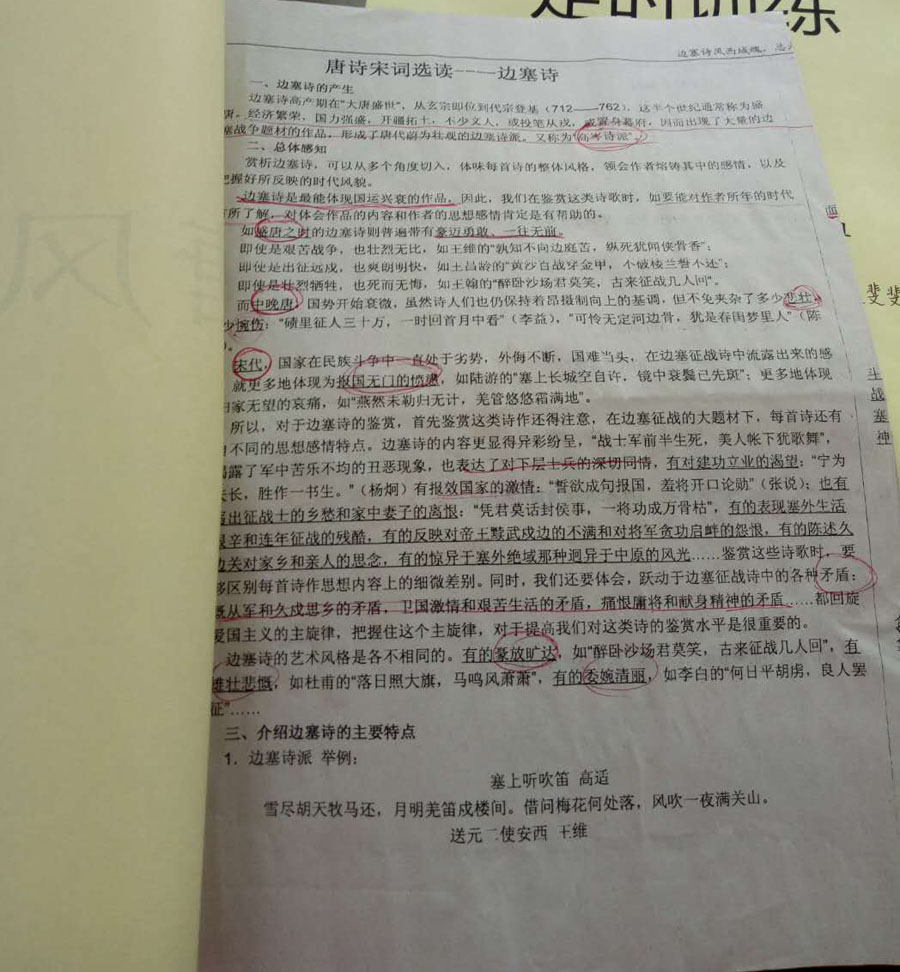 定时训练
边塞诗风雨域魄，
唐诗宋词选读----边塞诗
一、边塞诗的产生
边塞诗高产期在“大唐盛世”，从玄宗即位到代宗登基（712——762），这半个世纪通常称为盛
唐。经济繁荣，国力强盛，开疆拓土，不少文人，或投笔从戎，或置身幕府，因而出现了大量的边
塞战争题材的作品，形成了唐代蔚为壮观的边塞诗派。又称为“高岑诗派”。
二、总体感知
赏析边塞诗，可以从多个角度切入，体味每首诗的整体风格，领会作者熔铸其中的感情，以及
把握好所反映的时代风貌。
边塞诗是最能体现国运兴衰的作品，因此，我们在鉴赏这类诗歌时，如要能对作者所年的时代
有所了解，对体会作品的内容和作者的思想感情肯定是有帮助的。
如盛唐之时的边塞诗则普遍带有豪迈勇敢、一往无前。
即使是艰苦战争，也壮烈无比，如王维的“孰知不向边庭苦，纵死犹闻侠骨香”；
即使是出征远戍，也爽朗明快，如王昌龄的“黄沙百战穿金甲，不破楼兰誓不还”；
即使是壮烈牺牲，也死而无悔，如王翰的“醉卧沙场君莫笑，古来征战几人回”。
而中晚唐，国势开始衰微，虽然诗人们也仍保持着昂摄制向上的基调，但不免夹杂了多少悲壮，
少惋伤：“碛里征人三十万，一时回首月中看”（李益），“可怜无定河边骨，犹是春闺梦里人”（陈
）。
宋代，国家在民族斗争中一直处于劣势，外侮不断，国难当头，在边塞征战诗中流露出来的感
就更多地体现为报国无门的愤懑，如陆游的“塞上长城空自许，镜中衰鬓已先斑”；更多地体现
归家无望的哀痛，如“燕然未勒归无计，羌管悠悠霜满地”。
所以，对于边塞诗的鉴赏，首先鉴赏这类诗作还得注意，在边塞征战的大题材下，每首诗还有
不同的思想感情特点。边塞诗的内容更显得异彩纷呈，“战士军前半生死，美人帐下犹歌舞”，
揭露了军中苦乐不均的丑恶现象，也表达了对下层士兵的深切同情，有对建功立业的渴望：“宁为
夫长，胜作一书生。”（杨炯）有报效国家的激情：“誓欲成句报国，羞将开口论勋”（张说）；也有
出征战士的乡愁和家中妻子的离恨：“凭君莫话封侯事，一将功成万骨枯”，有的表现塞外生活
艰辛和连年征战的残酷，有的反映对帝王黩武戍边的不满和对将军贪功启衅的怨恨，有的陈述久
边关对家乡和亲人的思念，有的惊异于塞外绝域那种迥异于中原的风光……鉴赏这些诗歌时，要
够区别每首诗作思想内容上的细微差别。同时，我们还要体会，跃动于边塞征战诗中的各种矛盾：
慨从军和久戍思乡的矛盾，卫国激情和艰苦生活的矛盾，痛恨庸将和献身精神的矛盾……都回旋
爱国主义的主旋律，把握住这个主旋律，对于提高我们对这类诗的鉴赏水平是很重要的。
边塞诗的艺术风格是各不相同的。有的豪放旷达，如“醉卧沙场君莫笑，古来征战几人回”，有
雄壮悲慨，如杜甫的“落日照大旗，马鸣风萧萧”，有的委婉清丽，如李白的“何日平胡虏，良人罢
征”……
三、介绍边塞诗的主要特点
1．边塞诗派 举例：
塞上听吹笛 高适
雪尽胡天牧马还，月明羌笛戍楼间。借问梅花何处落，风吹一夜满关山。
送元二使安西 王维
斐斐
生
战
塞
神
风